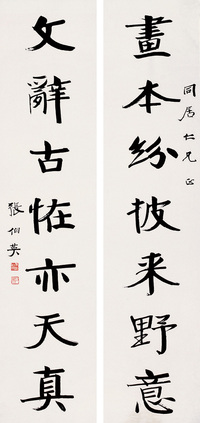 畫本紛披来野意
同居仁兄正
文辭古怪亦天真
張伯英